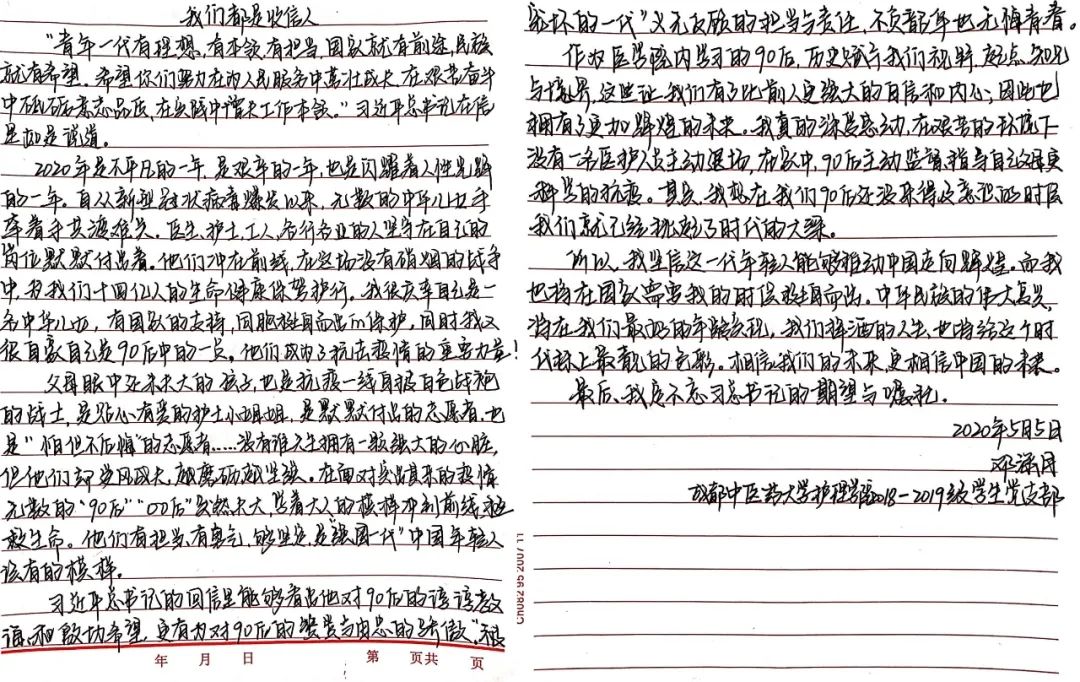 我们都是收信人
"青年一代有理想，有本领，有担当，国家就有前途，民族
就有希望。希望你们努力在为人民服务中茁壮成长，在艰苦奋斗
中砥砺意志品质，在实践中增长工作本领。"习近平总书记在信
里如是说道。
2020年是不平凡的一年，是艰辛的一年，也是闪耀着人性光辉
的一年。自从新型冠状病毒爆发以来，无数的中华儿女手
牵着手共渡难关，医生，护士，工人，各行各业的人坚守在自己的
岗位默默付出着。他们冲在前线，在这场没有硝烟的战争
中，为我们十四亿人的生命健康保驾护行。我很庆幸自己是一
名中华儿女，有国家的支持，同胞挺身而出的保护，同时我又
很自豪自己是90后中的一员。他们成为了抗击疫情的重要力量！
父母眼中还未长大的孩子，也是抗疫一线身披白色战袍
的战士，是贴心有爱的护士小姐姐，是默默付出的志愿者，也
是"怕但不后悔"的志愿者……没有谁天生拥有一颗强大的心脏，
但他们却迎风成长，越磨砺越坚强。在面对突出其来的疫情
无数的"90后""00后"突然长大，学着大人的模样冲到前线拯
救生命。他们有担当，有勇气，够坚定，是"强国一代"中国年轻人
该有的模样。
习近平总书记的回信里能够看出他对90后的谆谆教
诲，和殷切希望，更有为对90后的赞赏与由衷的骄傲。"被
宠坏的一代"义无反顾的担当与责任，不负韶华也无悔青春。
作为医学院内学习的90后，历史赋予我们视野，起点，知识
与境界，这些让我们有了比前人更强大的自信和内心；因此也
拥有了更加辉煌的未来。我真的深受感动，在艰苦的环境下
没有一名医护人员主动退场，在家中，90后主动监督指导自己家里更
科学的抗疫。其实，我想在我们90后还没来得及意识的时候
我们就已经挑起了时代的大梁。
所以，我坚信这一代年轻人能够推动中国走向辉煌。而我
也将在国家需要我的时候挺身而出。中华民族的伟大复兴
将在我们最好的年龄实现，我们挥洒的人生，也将给这个时
代抹上最靓的色彩。相信我们的未来，更相信中国的未来。
最后，我定不忘习总书记的期望与嘱托。
2020年5月5日
成都中医药大学护理学院2018-2019级学生党支部
年 月 日 第 页共 页